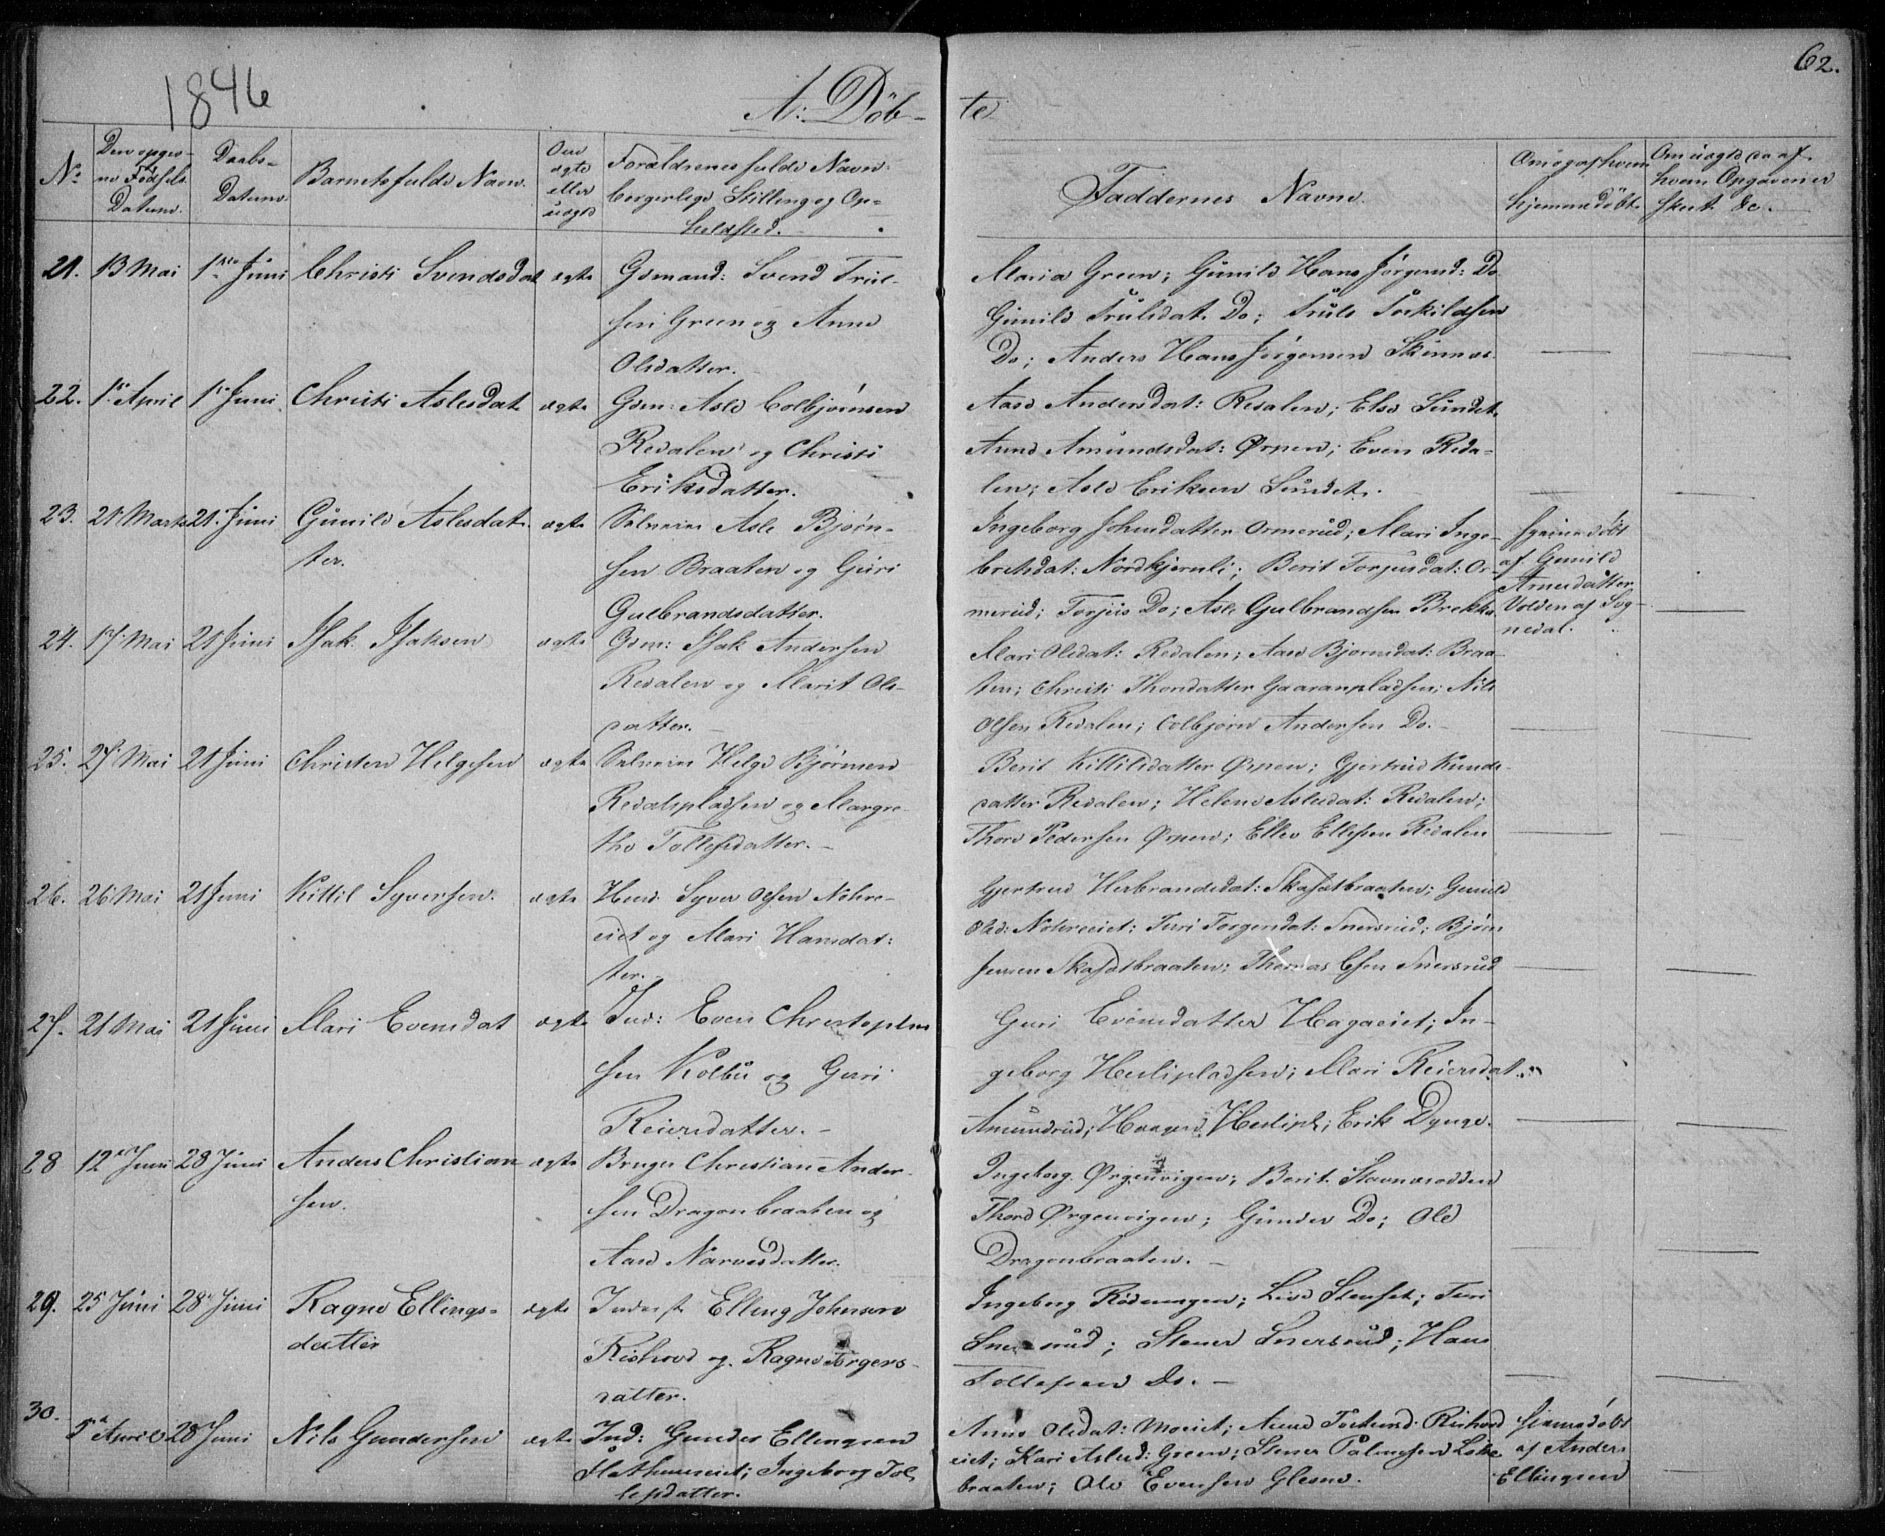 62.
1846
A: Döb-te
No
Den opgivne Fødsels Datum.
Daabs-Datum
Barnets fulde Navn.
Om ægte eller uægte
Forældrenes fulde Navn, borgerlige Stilling og Opholdsted.
Faddernes Navne.
Om og af hvem hjemmedöbt
Om uægte da af hvem Opgaven er skeet &c.
21. 13 Mai 1ste Juni Christi Svendsdat ægte Gdmand: Svend Trul-
sen Green og Anne
Olsdatter.
Maria Green; Gunild Hans Jörgens: Do
Gunild Trulsdat. Do; Truls Torkildsen
Do; Anders Hans Jörgensen Skinnes
22. 1ste April 1ste Juni Christi Aslesdat ægte Gdm: Asle Colbjørnsen
Redalen og Christi
Eriksdatter.
Aase Andersdat: Redalen; Else Sundet.
Anne Amundsdat: Ørpen; Even Reda-
len; Asle Eriksen Sundet.
23. 21 Marts 21. Juni Gunild Aslesdat-
ter. ægte Selveier Asle Bjørn-
sen Braaten og Guri
Gulbrandsdatter.
Ingeborg Johnsdatter Ormerud; Mari Inge-
bretsdat: Nordkjernli; Berit Torjusdat: Or-
merud; Torjus Do; Asle Gulbrandsen Brekke
hjemmedöbt
af Gunild
Arnesdatter
Volden af Sog-
nedal.
24. 17 Mai 21 Juni Isak Isaksen ægte Gdm: Isak Andersen
Redalen og Marit Ols-
datter.
Mari Olsdat: Redalen; Aase Bjornsdat: Braa-
ten; Christi Thorsdatter Gaaranpladsen; Nils
Olsen Redalen; Colbjorn Andersen Do.
25. 27 Mai 21 Juni Christen Helgesen ægte Selveier Helge Bjørnsen
Redalspladsen og Margre-
the Tollefsdatter.
Berit Kittilsdatter Ørpen; Gjertrud Knuds-
datter Redalen; Helene Aslesdat: Redalen;
Thore Pedersen Ørpen; Ellev Ellefsen Redalen
26. 26 Mai 21 Juni Kittil Syversen. ægte Huus Syver Olsen Nohre-
eiet og Mari Hansdat:
ter.
Gjertrud Herbrandsdat: Skafsdbraaten; Gunild
Olsd: Nohreeiet; Turi Torgersdat: Snersrud; Bjørn
Jensen Skafsdbraaten; Thomas Snersrud
27. 21 Mai 21 Juni Mari Evensdat ægte Ind: Even Christophe-
sen Kolbu og Guri
Reiersdatter.
Guri Evensdatter Hagaeiet; In-
geborg Heslipladsen; Mari Reiersdat
Amundrud; Haagen Heslipl; Erik Dynge.
28 12te Juni 28 Juni Anders Christian-
sen. ægte Bruger Christian Ander-
sen Dragonbraaten og
Aase Narvesdatter.
Ingeborg Ørgenvigen; Berit Stavnesodden
Thord Ørgenvigen; Gunder Do; Ole
Dragonbraaten.
29. 25 Juni 28 Juni Ragne Ellings-
datter ægte Inderst Elling Johnsen
Rishovd og Ragne Torgers-
datter.
Ingeborg Rödningen; Live Stenset; Turi
Snersrud; Stener Snersrud; Hans
Tollefsen Do.
30. 5te April 28 Juni Nils Gundersen ægte Ind: Gunder Ellingsen
Slethuuseiet; Ingeborg Tol-
lefsdatter.
Anne Olsdat: Moeiet; Rishovd
eiet; Kari Aslesd: Green; Stener Paalsen
braaten; Ole Evensen Glesne.
hjemmedöbt
af Anders
Ellingsen